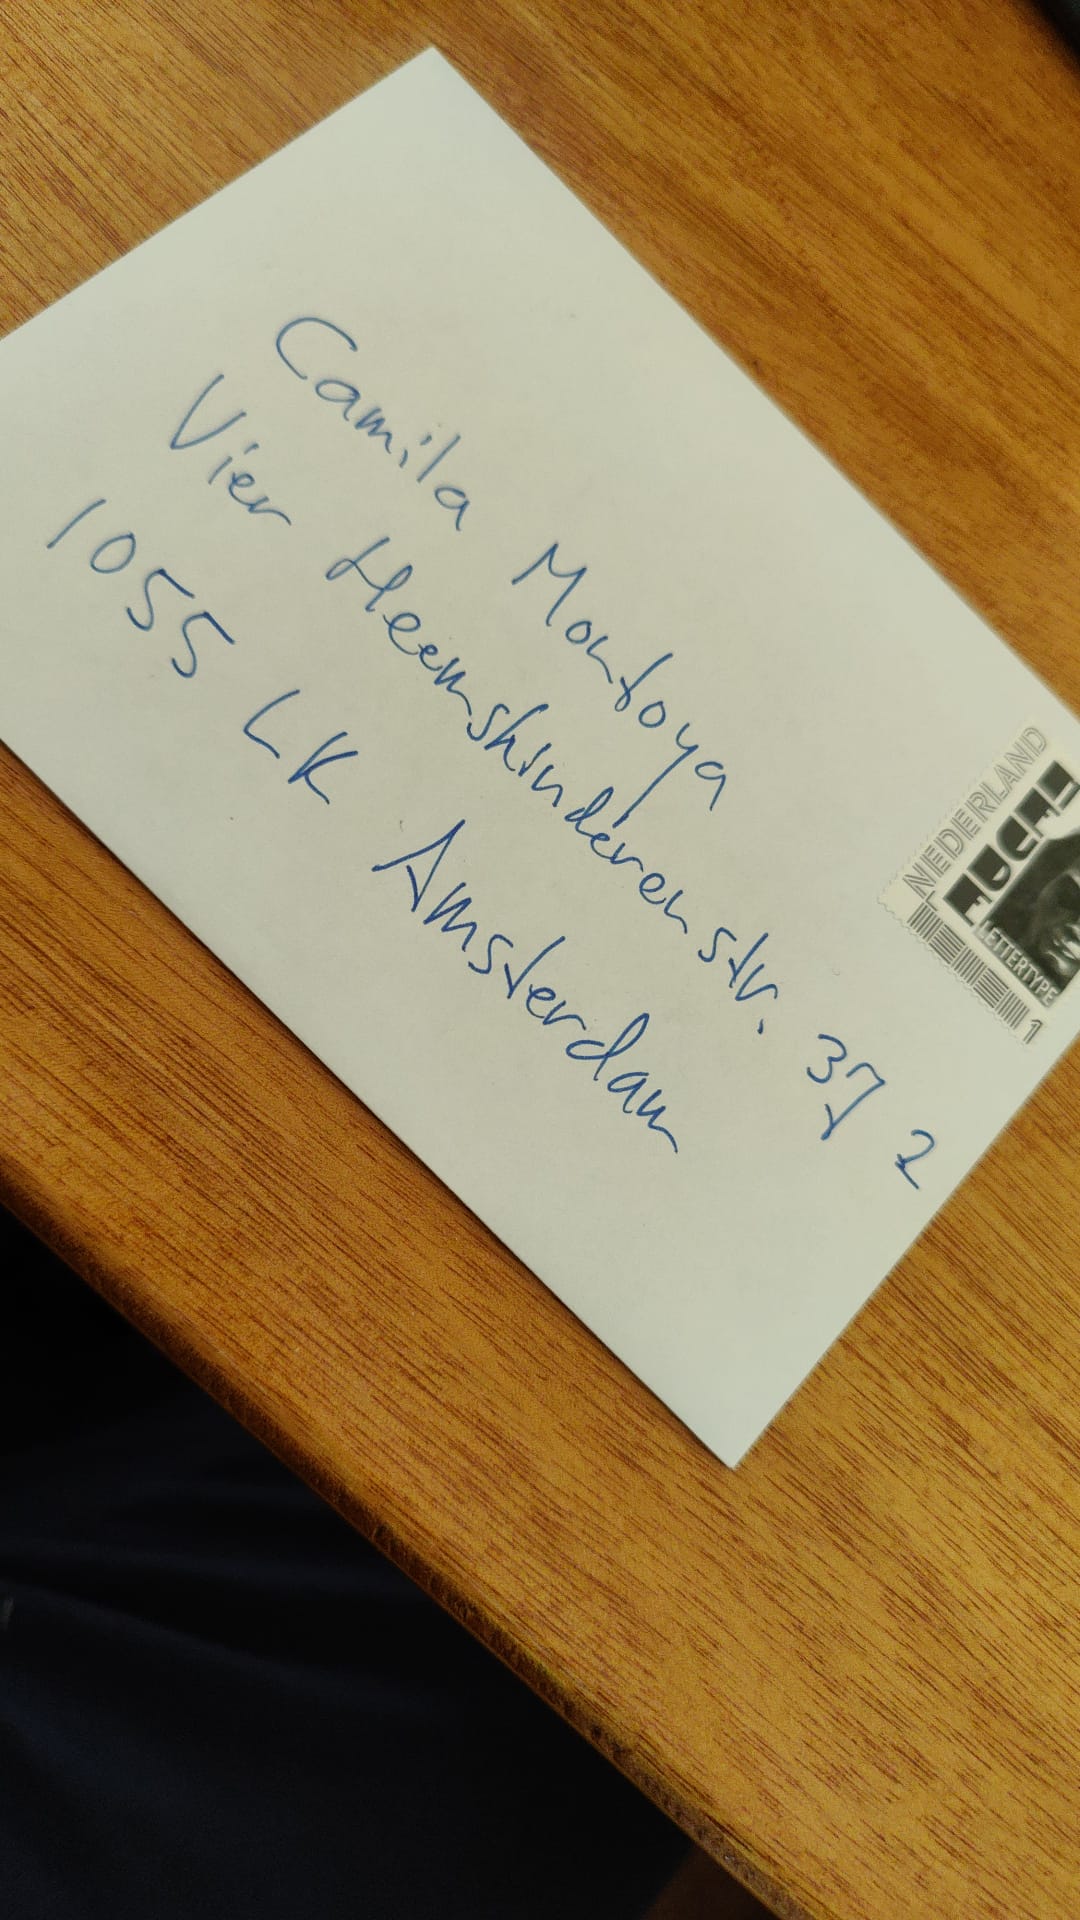 Camila Montoya
Vier Heemskinderenstr. 37 2
1055 LK Amsterdam
NEDERLAND
LETTERTYPE
1